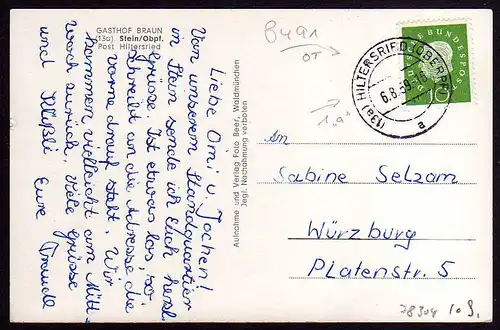 GASTHOF BRAUN
(13a) Stein/Obpf.
Post Hiltersried
Liebe Omi u. Jochen!
Von unserem Standquartier
in Stein sende ich Euch herzl.
Grüsse. Ist etwas los, so
schreibt an die Adresse die
vorne drauf steht. Wir
kommen vielleicht am Mitt-
woch zurück. Viele Grüsse
und Küßli Eure
Traudl
Aufnahme und Verlag Foto Beer, Waldmünchen
Jegl. Nachahmung verboten
B491
OT
1"a"
DEUTSCHE BUNDESPOST
10
(13a) HILTERSRIED (OBERPF)
6.8.59
a
An
Sabine Selzam
Würzburg
Platenstr. 5
28304